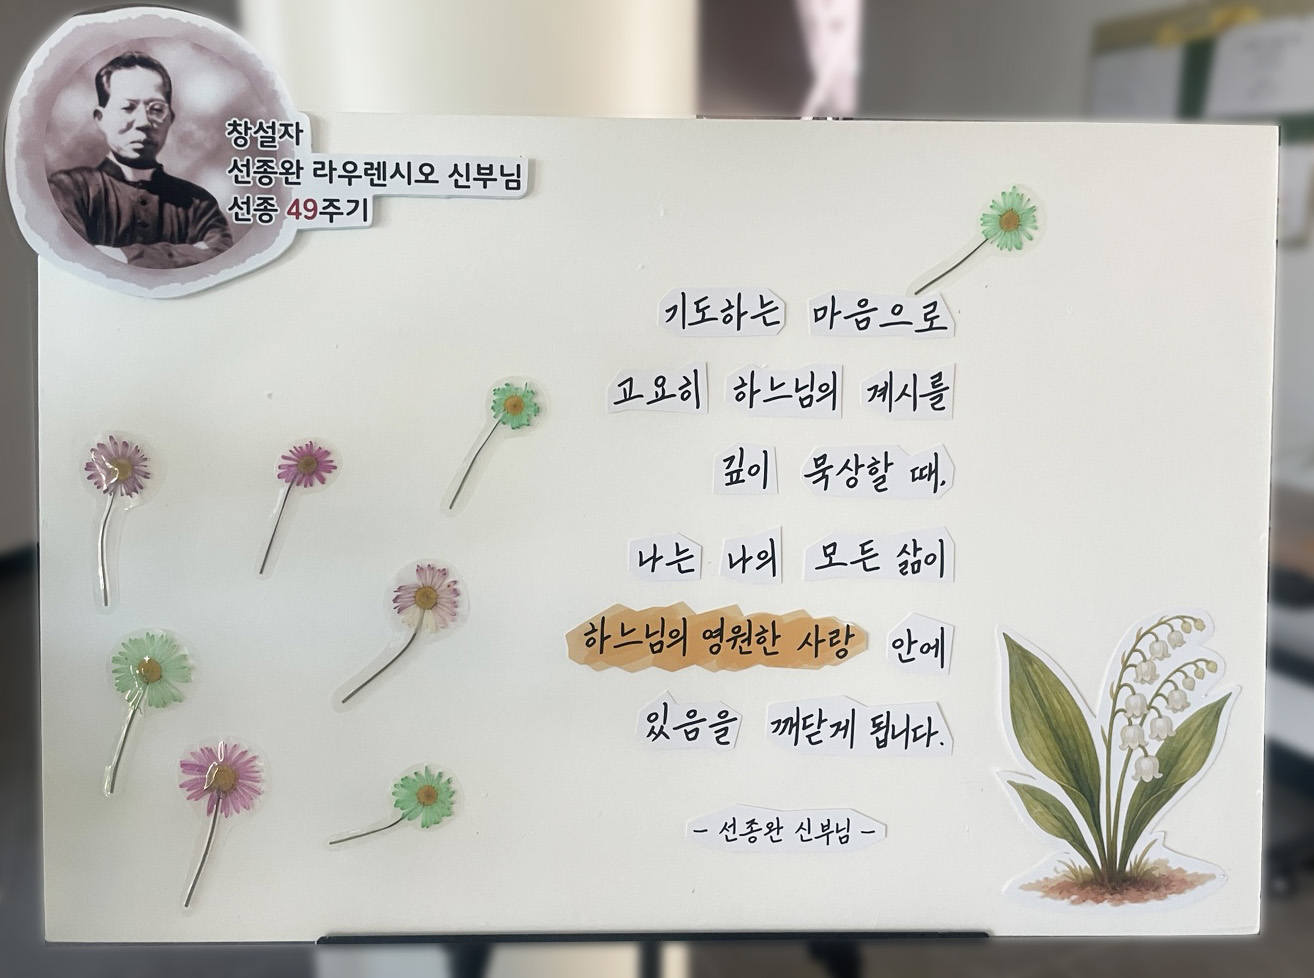 창설자
선종완 라우렌시오 신부님
선종 49주기
기도하는 마음으로
고요히 하느님의 계시를
깊이 묵상할 때,
나는 나의 모든 삶이
하느님의 영원한 사랑 안에
있음을 깨닫게 됩니다.
- 선종완 신부님 -